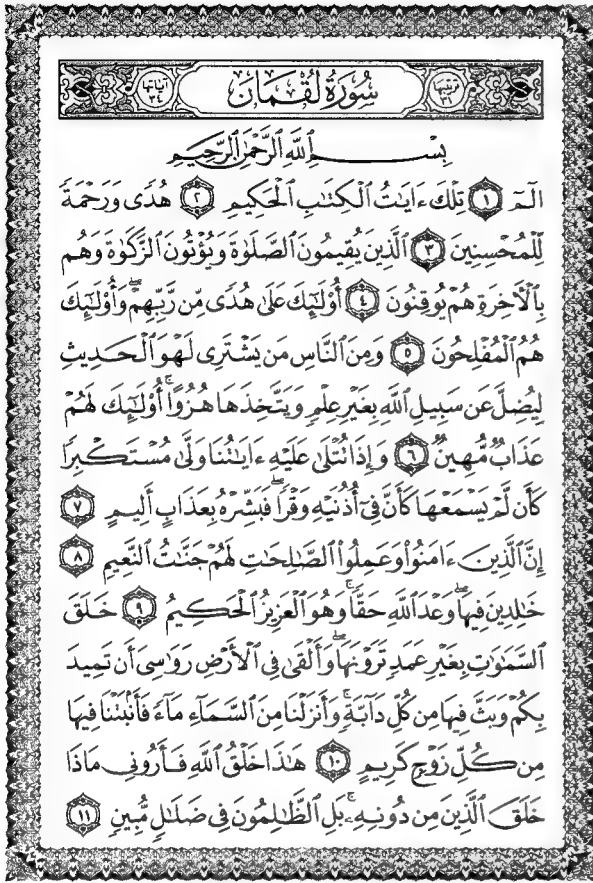 ترتيبها ٣١ سُورَةُ لُقْمَان آياتها ٣٤
بِسْمِ ٱللَّهِ ٱلرَّحْمَٰنِ ٱلرَّحِيمِ
الٓمٓ ١ تِلْكَ ءَايَٰتُ ٱلْكِتَٰبِ ٱلْحَكِيمِ ٢ هُدًى وَرَحْمَةً
لِّلْمُحْسِنِينَ ٣ ٱلَّذِينَ يُقِيمُونَ ٱلصَّلَوٰةَ وَيُؤْتُونَ ٱلزَّكَوٰةَ وَهُم
بِٱلْأَخِرَةِ هُمْ يُوقِنُونَ ٤ أُوْلَٰٓئِكَ عَلَىٰ هُدًى مِّن رَّبِّهِمْ ۖ وَأُوْلَٰٓئِكَ
هُمُ ٱلْمُفْلِحُونَ ٥ وَمِنَ ٱلنَّاسِ مَن يَشْتَرِى لَهْوَ ٱلْحَدِيثِ
لِيُضِلَّ عَن سَبِيلِ ٱللَّهِ بِغَيْرِ عِلْمٍ وَيَتَّخِذَهَا هُزُوًا ۚ أُوْلَٰٓئِكَ لَهُمْ
عَذَابٌ مُّهِينٌ ٦ وَإِذَا تُتْلَىٰ عَلَيْهِ ءَايَٰتُنَا وَلَّىٰ مُسْتَكْبِرًا
كَأَن لَّمْ يَسْمَعْهَا كَأَنَّ فِىٓ أُذُنَيْهِ وَقْرًا ۖ فَبَشِّرْهُ بِعَذَابٍ أَلِيمٍ ٧
إِنَّ ٱلَّذِينَ ءَامَنُوا۟ وَعَمِلُوا۟ ٱلصَّٰلِحَٰتِ لَهُمْ جَنَّٰتُ ٱلنَّعِيمِ ٨
خَٰلِدِينَ فِيهَا ۖ وَعْدَ ٱللَّهِ حَقًّا ۚ وَهُوَ ٱلْعَزِيزُ ٱلْحَكِيمُ ٩ خَلَقَ
ٱلسَّمَٰوَٰتِ بِغَيْرِ عَمَدٍ تَرَوْنَهَا ۖ وَأَلْقَىٰ فِى ٱلْأَرْضِ رَوَٰسِىَ أَن تَمِيدَ
بِكُمْ وَبَثَّ فِيهَا مِن كُلِّ دَآبَّةٍ ۚ وَأَنزَلْنَا مِنَ ٱلسَّمَآءِ مَآءً فَأَنۢبَتْنَا فِيهَا
مِن كُلِّ زَوْجٍ كَرِيمٍ ١٠ هَٰذَا خَلْقُ ٱللَّهِ فَأَرُونِى مَاذَا
خَلَقَ ٱلَّذِينَ مِن دُونِهِۦ ۚ بَلِ ٱلظَّٰلِمُونَ فِى ضَلَٰلٍ مُّبِينٍ ١١